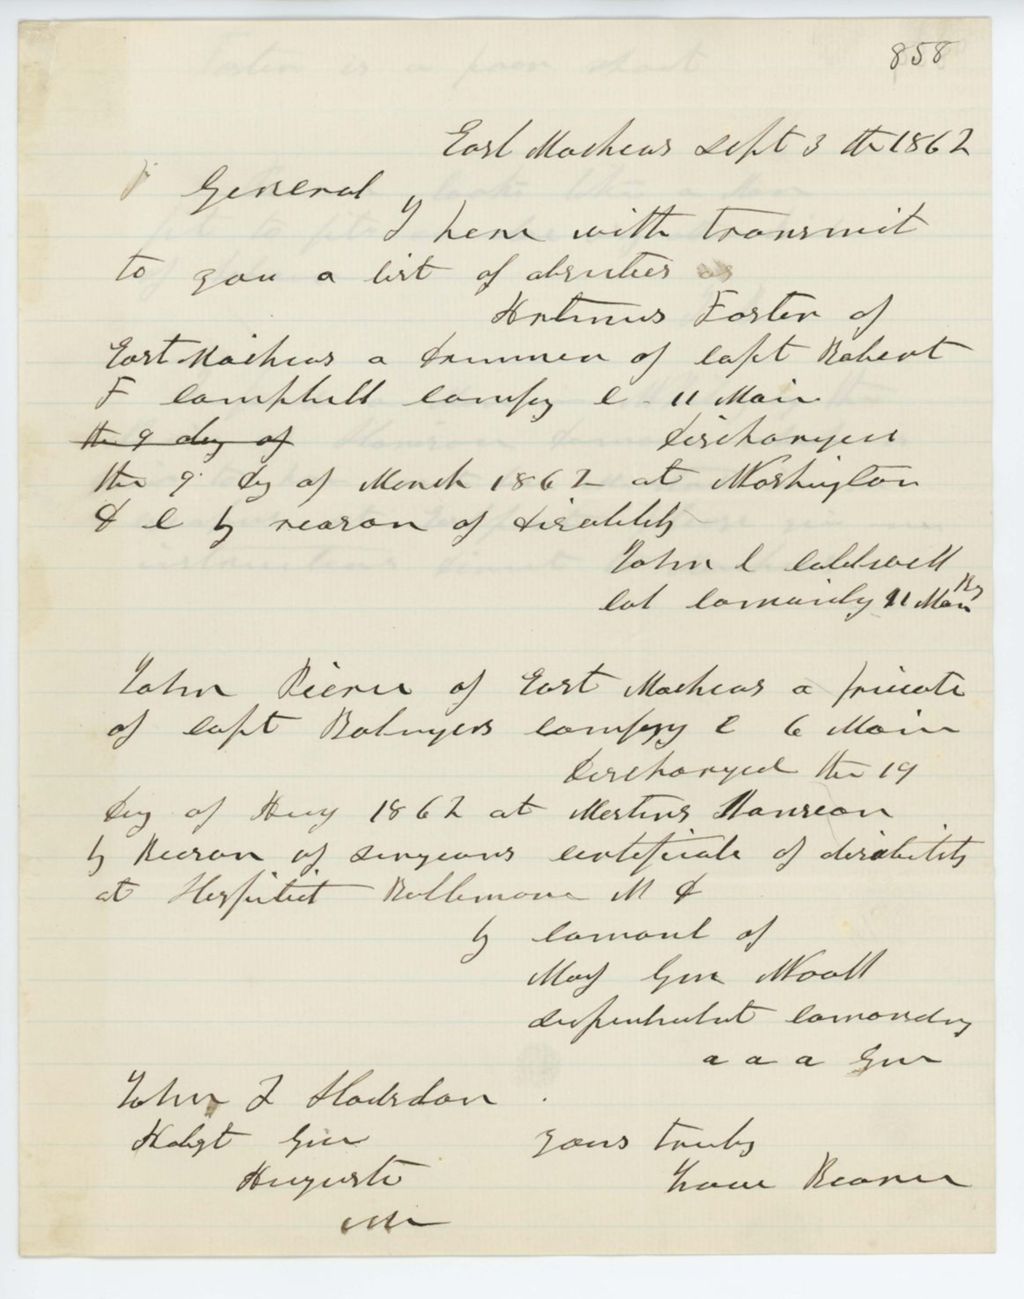 858
East Machias Sept 3 th 1862
General
I here with transmit
to you a list of absenties as
Artimus Foster of
East Machias a Drummer of Capt Robert
F Camphell Compy C 11 Main
the 9 day of Discharged
the 9 Dy of March 1862 at Washington
D C by reason of Disability
John C Caldwell
Col Comandg 11 Main Rg
John Pierce of East Machias a private
of Capt Compy C 6 Main
Discharged the 19
Day of Aug 1862 at Mansion
by Reason of Surgeons Certificate of disability
at Hospitil Baltimore M D
by Comand of
Maj Gen Wooll
Comandg
a a a Gen
John L Hodsdon
Adgt Gen yours truly
Augusta
Me